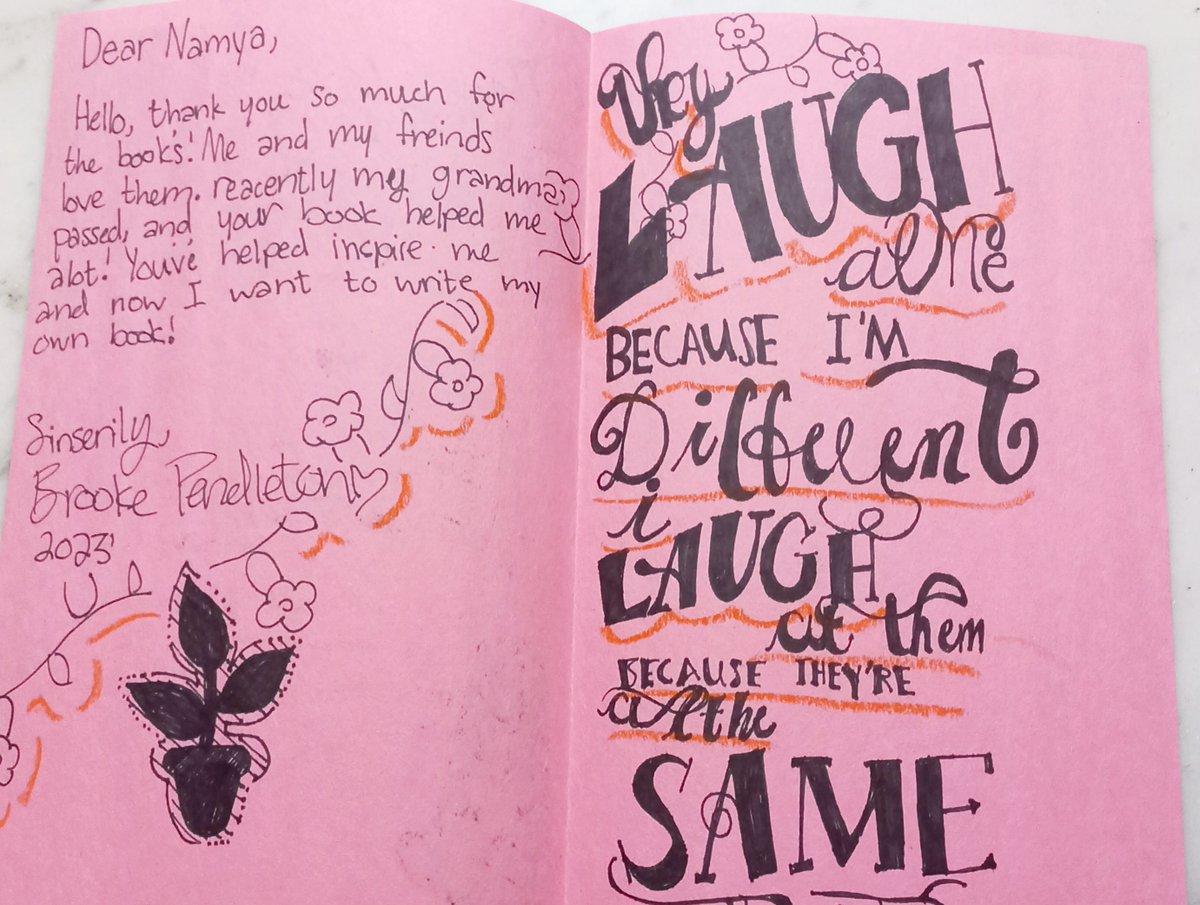 Dear Namya,
Hello, thank you so much for
the book's! Me and my freinds
love them. reacently my grandma
passed, and your book helped me
alot! You've helped inspire me
and now I want to write my
own book!
Sinserily,
Brooke Pendleton
2023'
They
LAUGH
at me
BECAUSE I'M
Different
i
LAUGH
at them
BECAUSE THEY'RE
all the
SAME